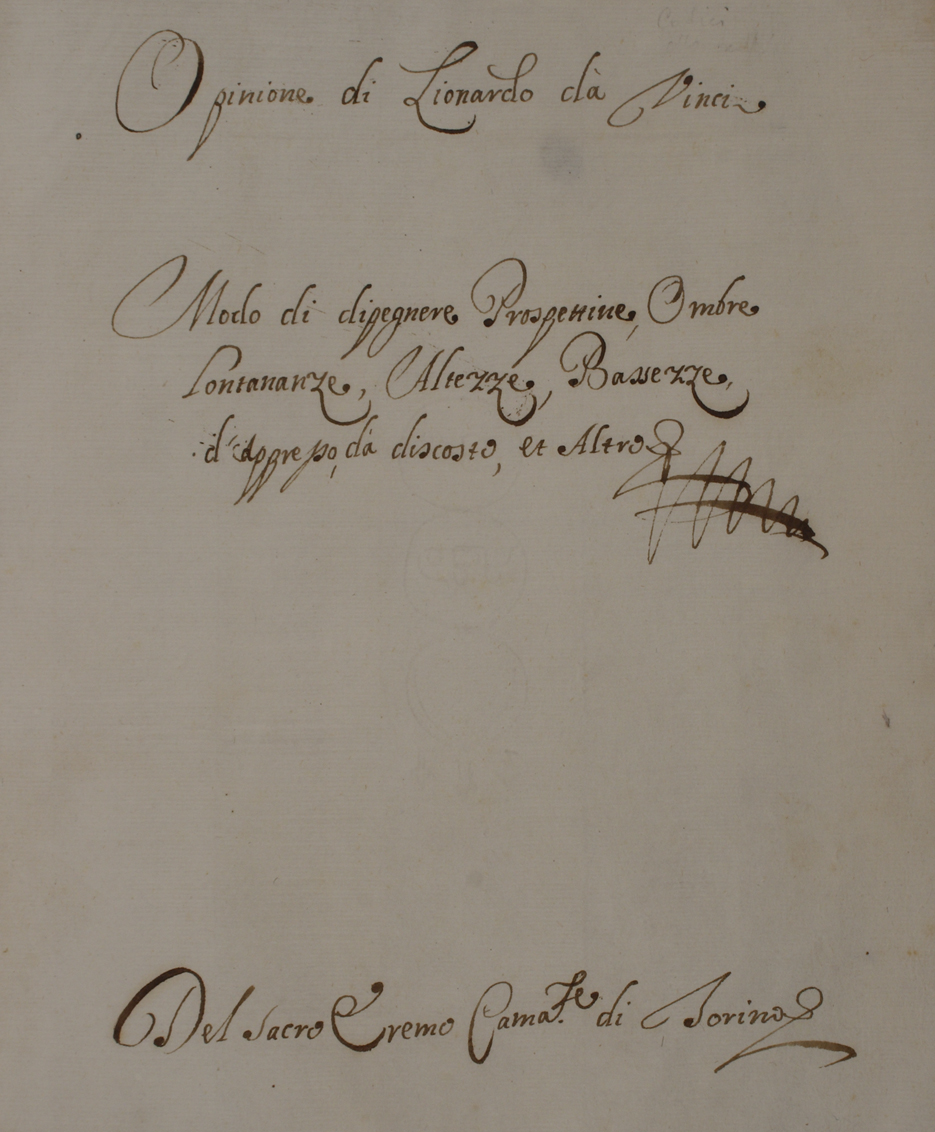 Opinione di Lionardo dà Vinci
Modo di dipegnere Prospettiue, Ombre
Lontananze, Altezze, Bassezze,
d'appresso, dà discosto, et Altro
Del Sacro Eremo Cama.se di Torino